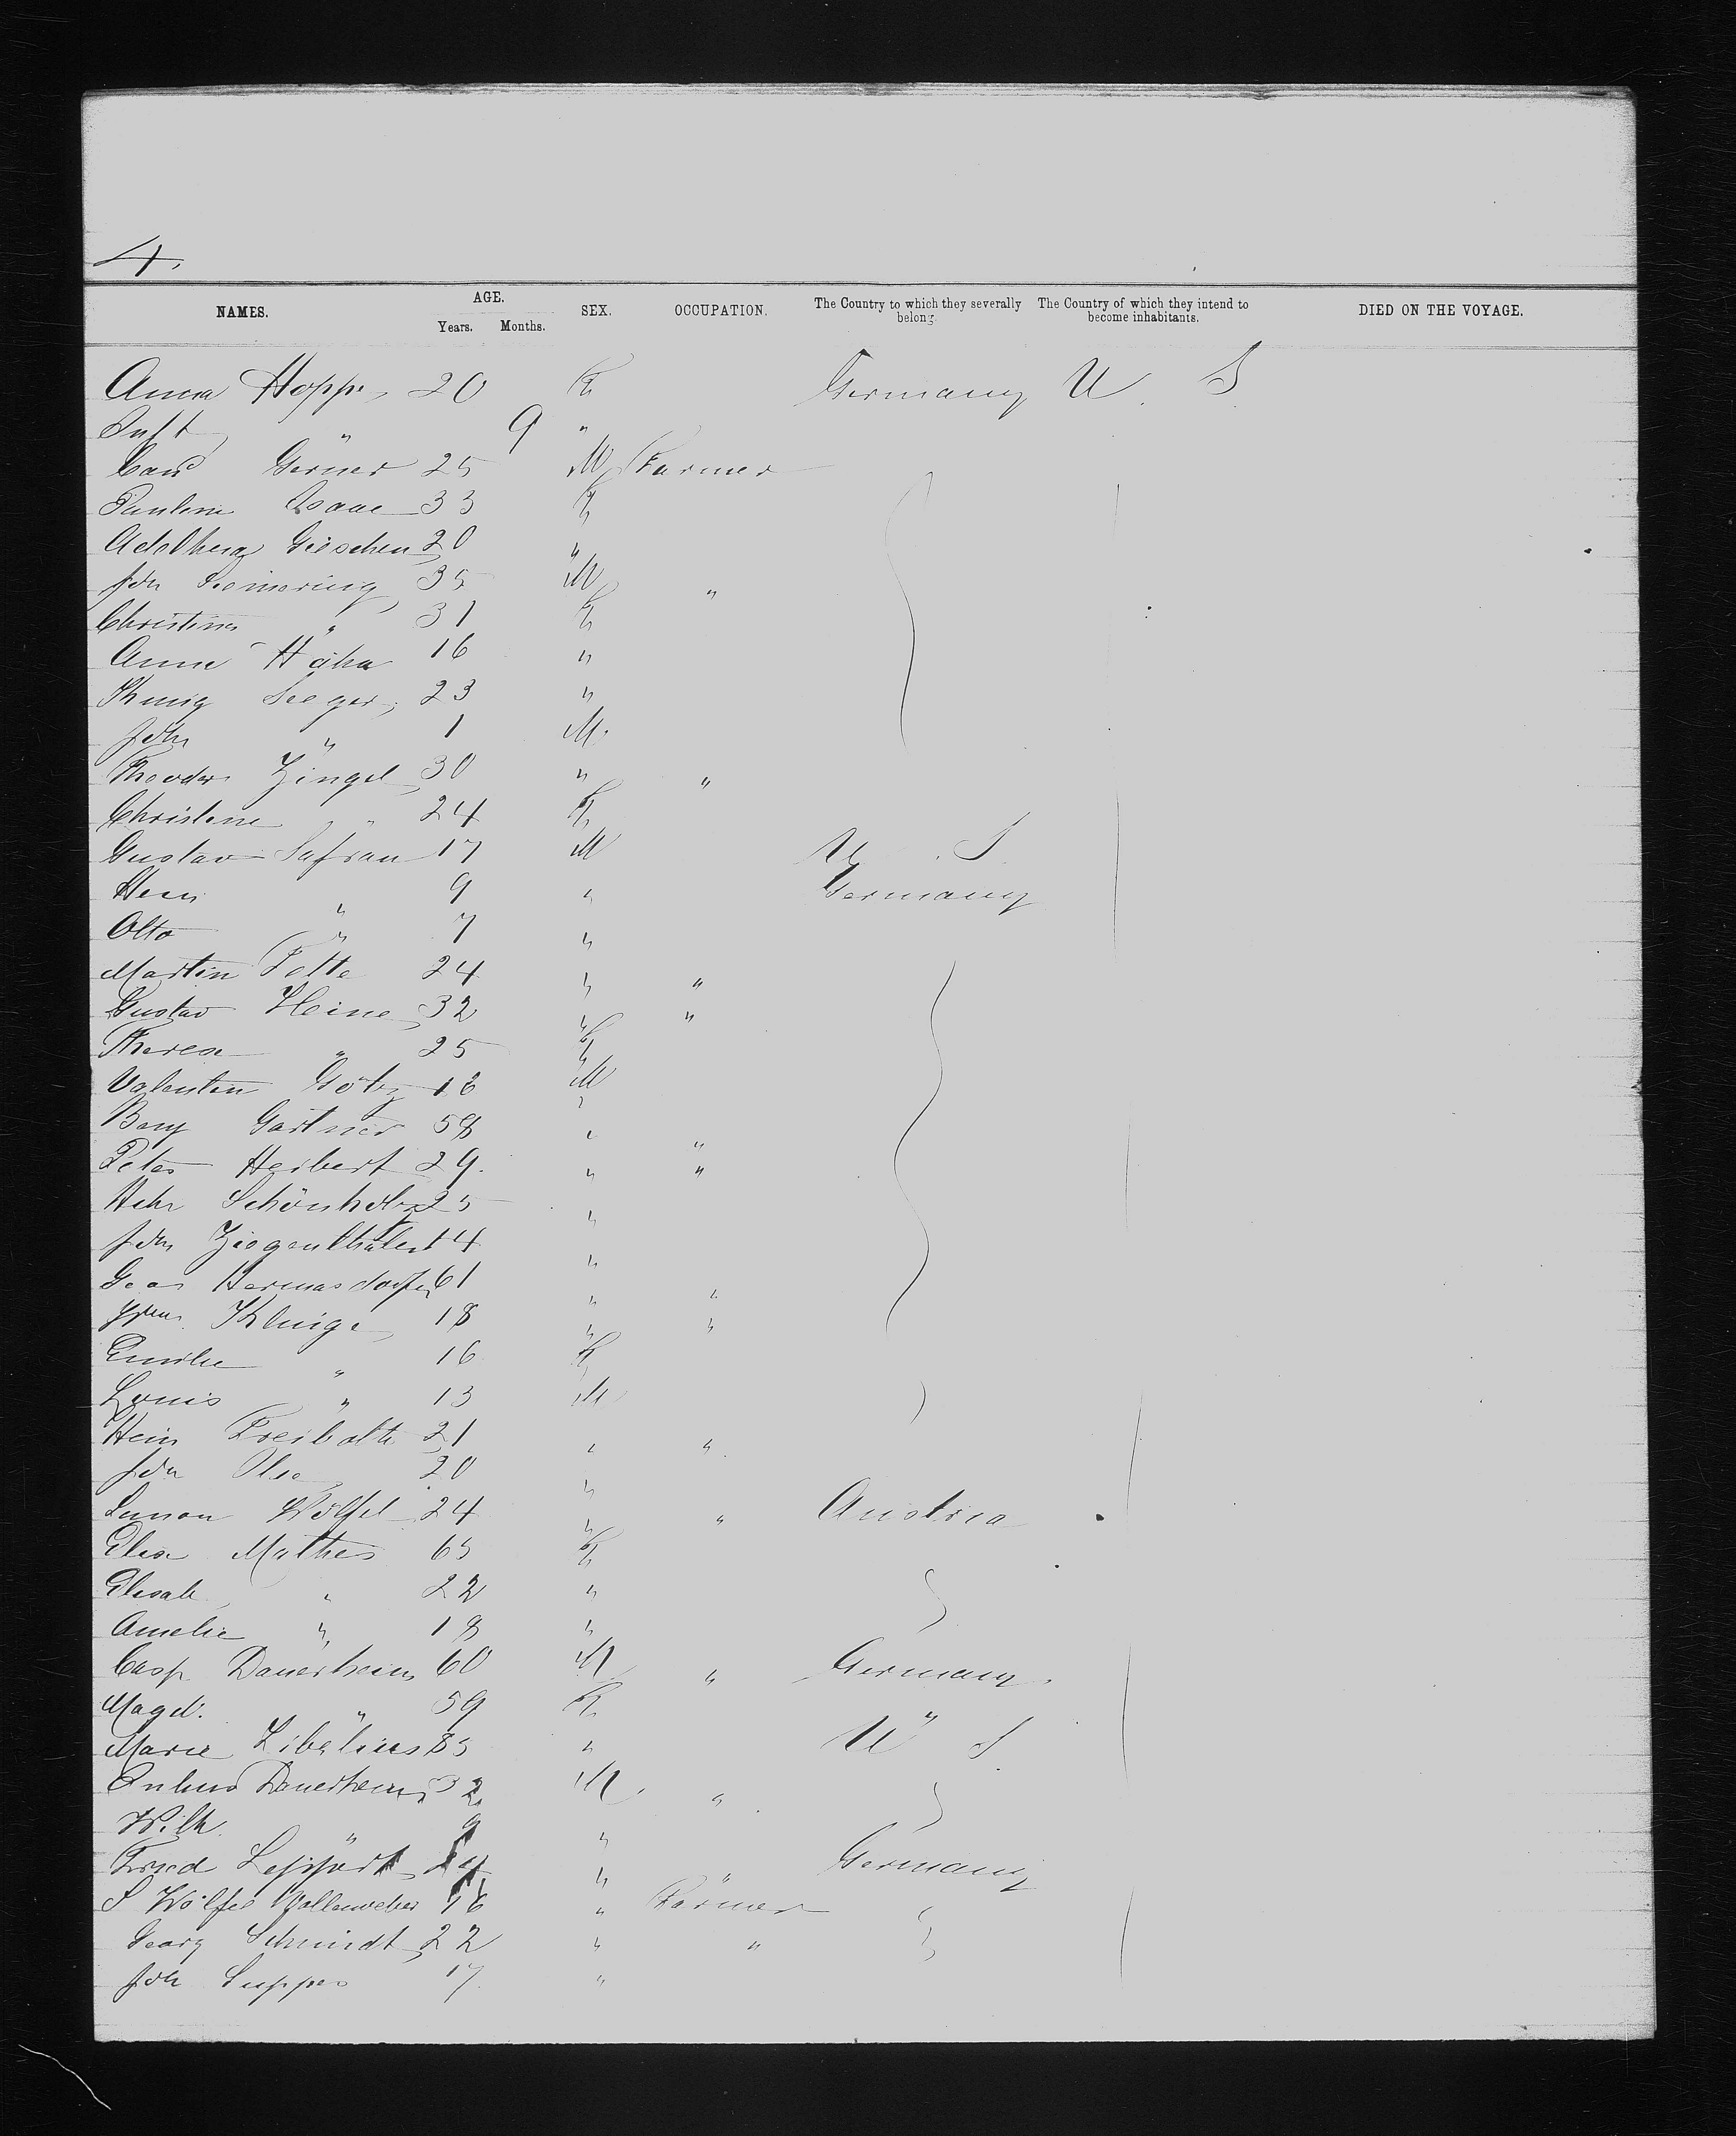 4.
NAMES. AGE. Years. Months. SEX. OCCUPATION. The Country to which they severally belong. The Country of which they intend to become inhabitants. DIED ON THE VOYAGE.
Anna Hoppe, 20 F Germany U. S.
" 9 "
Carl Gerner 25 M Farmer
Pauline Isaac 33 F
Gieschen 20 "
Joh 35 M "
Christine " 31 F
Anna Höhn 16 "
Seeger, 23 "
Joh " 1 M.
Theodor Zingel 30 " "
Christine " 24 F
Gustav Safran 17 M U. S.
Hein " 9 " Germany
Otto " 7 "
Martin Tette 24 " "
Gustav Heine 32 " "
Theresa " 25 F
Valentin Götz 18 M
Gartner 58 " "
Peter Herbert 29. " "
Hchr Schönholz 25 "
Joh Ziegenthaler 14 "
Geo Hermasdorfer 61 " "
Kluige 18 " "
Emilie " 16 F
Louis " 13 M
Hein Freibolth 21 " "
Joh 20 "
Simon Wölfel 24 " " Austria
Elisa Mathes 65 F
Elisab " 22 "
Amelie " 18 "
Casp Dauerheim 60 M " Germany.
Magd. " 59 F "
Marie Zibelius 83 " U S.
Dauerheim, 32 M. "
Wilh. " 9 "
Fried Leppert 24 " " Germany
S Wölfel Wollenweber 16 " Farmer
Georg Schmidt 22 " "
Joh Supper 17. "